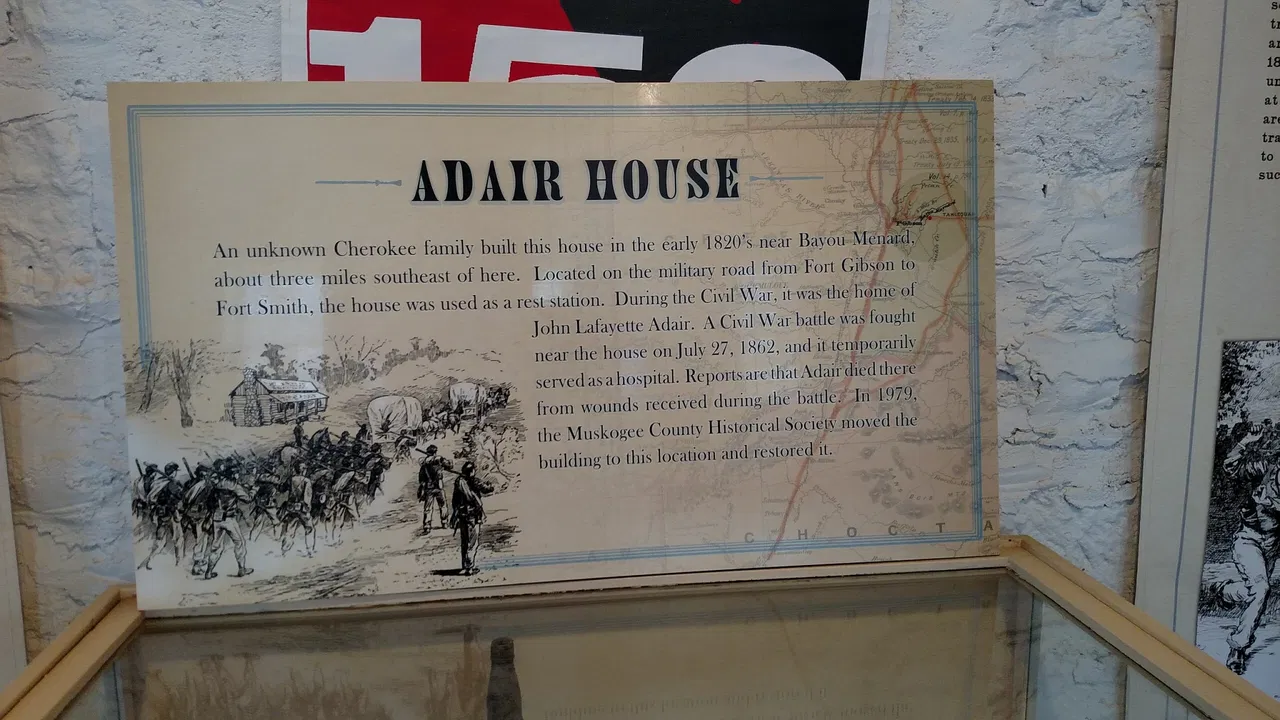 150
ADAIR HOUSE
An unknown Cherokee family built this house in the early 1820's near Bayou Menard,
about three miles southeast of here. Located on the military road from Fort Gibson to
Fort Smith, the house was used as a rest station. During the Civil War, it was the home of
John Lafayette Adair. A Civil War battle was fought
near the house on July 27, 1862, and it temporarily
served as a hospital. Reports are that Adair died there
from wounds received during the battle. In 1979,
the Muskogee County Historical Society moved the
building to this location and restored it.
CHOCTA